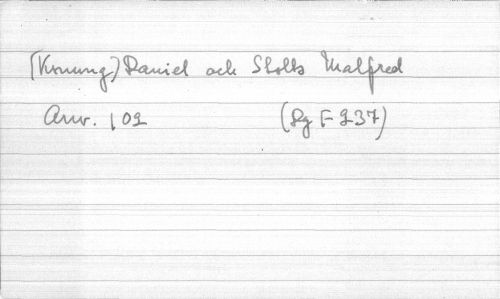 (Konung) Daniel och Slotts Malfred
Anv. 102 (Sg F 237)